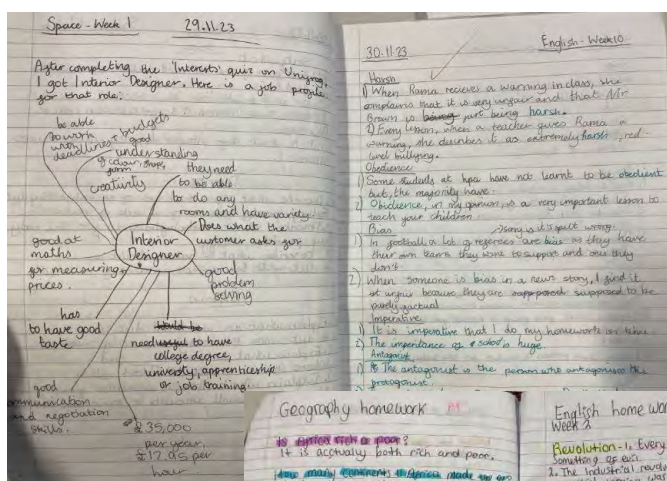 Space - Week 1
29.11.23
After completing the 'Interests' quiz on Unifrog,
I got Interior Designer. Here is a job profile
for that role:
be able
to work
with
deadlines + budgets
good
understanding
of colour, shape,
form
creativity
they need
to be able
to do any
rooms and have variety
Does what the
customer asks for
Interior
Designer
good at
maths
for measuring,
prices.
good
problem
solving
has
to have good
taste
need to have
college degree,
university, apprenticeship
or job training
good
communication
and negotiation
skills.
£35,000
per year.
£17.95 per
hour
30.11.23
English - Week 10
Harsh
1) When Rama reciever a warning in class, she
complains that it is very unfair and that Mr
Brown is just being harsh.
2) Every lesson, when a teacher gives Rama a
warning, she describes it as extremely harsh, red
level bullying.
Obedience
1) Some students at hpa have not learnt to be obedient
but, the majority have.
2) Obidience, in my opinion, is a very important lesson to
teach your children
Bias
sorry is it's spelt wrong
1) In football a lot of referees are bias as they have
their own teams they want to support and ones they
don't
2) When someone is bias in a news story, I find it
unfair because they are supposed to be
purely factual
Imperative
1) It is imperative that I do my homework on time
2) The importance of school is huge
Antagonist
1) The antagonist is the person who antagonises the
protagonist.
Geography homework
A1
Is Africa rich or poor?
It is acctually both rich and poor.
How many continents is Africa made up
English home wor
Week 2
Revolution - 1. Every
Something of
2. The Industrial revolu